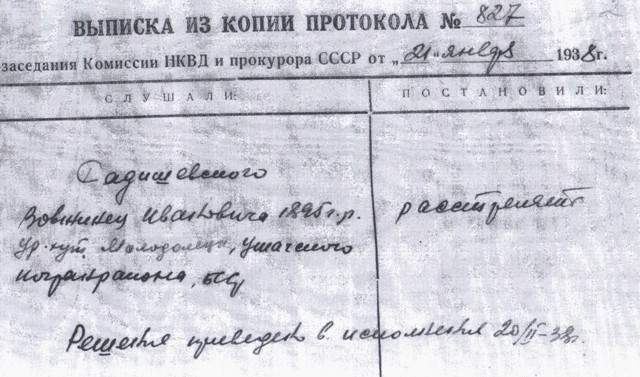 ВЫПИСКА ИЗ КОПИИ ПРОТОКОЛА № 827
заседания Комиссии НКВД и прокурора СССР от „21" января 1938 г.
СЛУШАЛИ:
ПОСТАНОВИЛИ:
Гадишевского
Ивановича 1895 г.р.
расстрелять
Ур. хут. Ушачского
погранрайона,
Решение приведено в исполнение 20/II-38г.